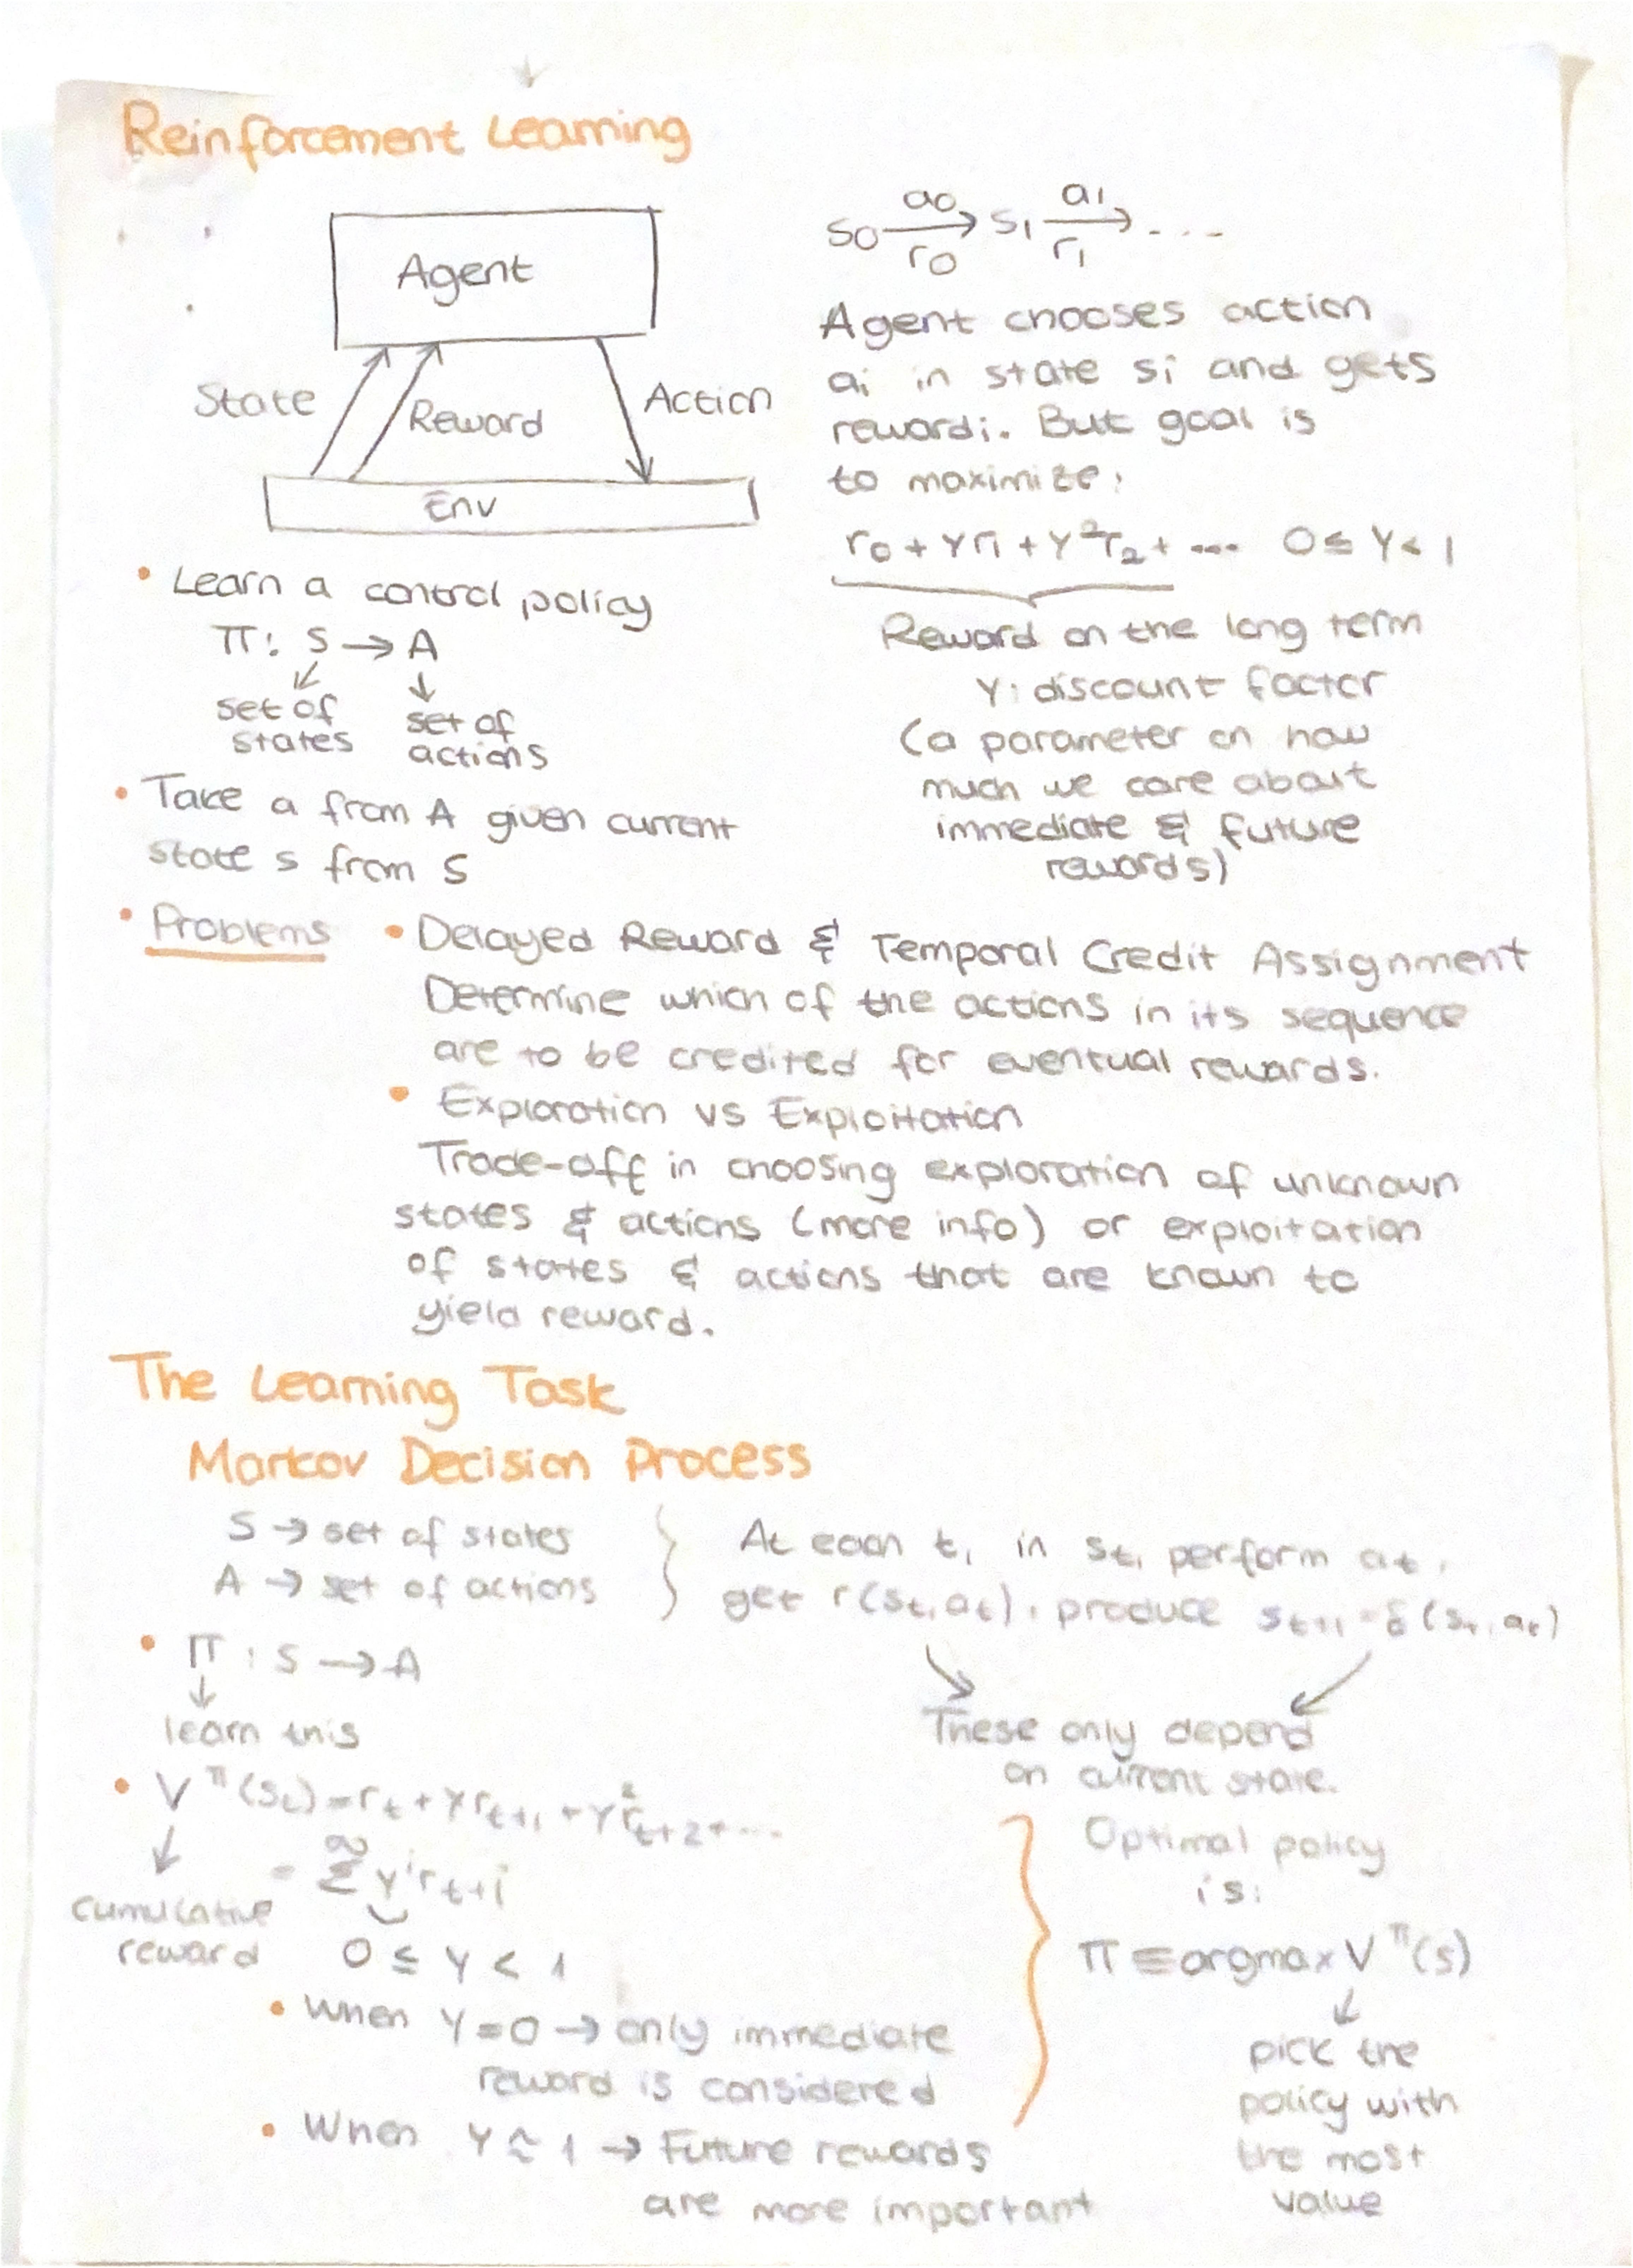 Reinforcement Learning
Agent
State
Reward
Action
Env
s0 a0 r0 → s1 a1 r1 → ....
Agent chooses action
ai in state si and gets
rewardi. But goal is
to maximize:
r0 + γr1 + γ²r2 + ... 0 ≤ γ < 1
Reward on the long term
γ: discount factor
(a parameter on how
much we care about
immediate & future
rewards)
• Learn a control policy
π: S → A
set of
states
set of
actions
• Take a from A given current
state s from S
• Problems
• Delayed Reward & Temporal Credit Assignment
Determine which of the actions in its sequence
are to be credited for eventual rewards.
• Exploration vs Exploitation
Trade-off in choosing exploration of unknown
states & actions (more info) or exploitation
of states & actions that are known to
yield reward.
The Learning Task
Markov Decision Process
S → set of states
A → set of actions
At each t, in st, perform at,
get r(st,at), produce st+1 = δ(st,at)
These only depend
on current state.
• π : S → A
learn this
• V^π(st) = rt + γrt+1 + γ²rt+2 + ...
= ∞ Σ γ^i rt+i
cumulative
reward
0 ≤ γ < 1
• When γ=0 → only immediate
reward is considered
• When γ ≈ 1 → Future rewards
are more important
Optimal policy
is:
π ≡ argmax V^π(s)
pick the
policy with
the most
value